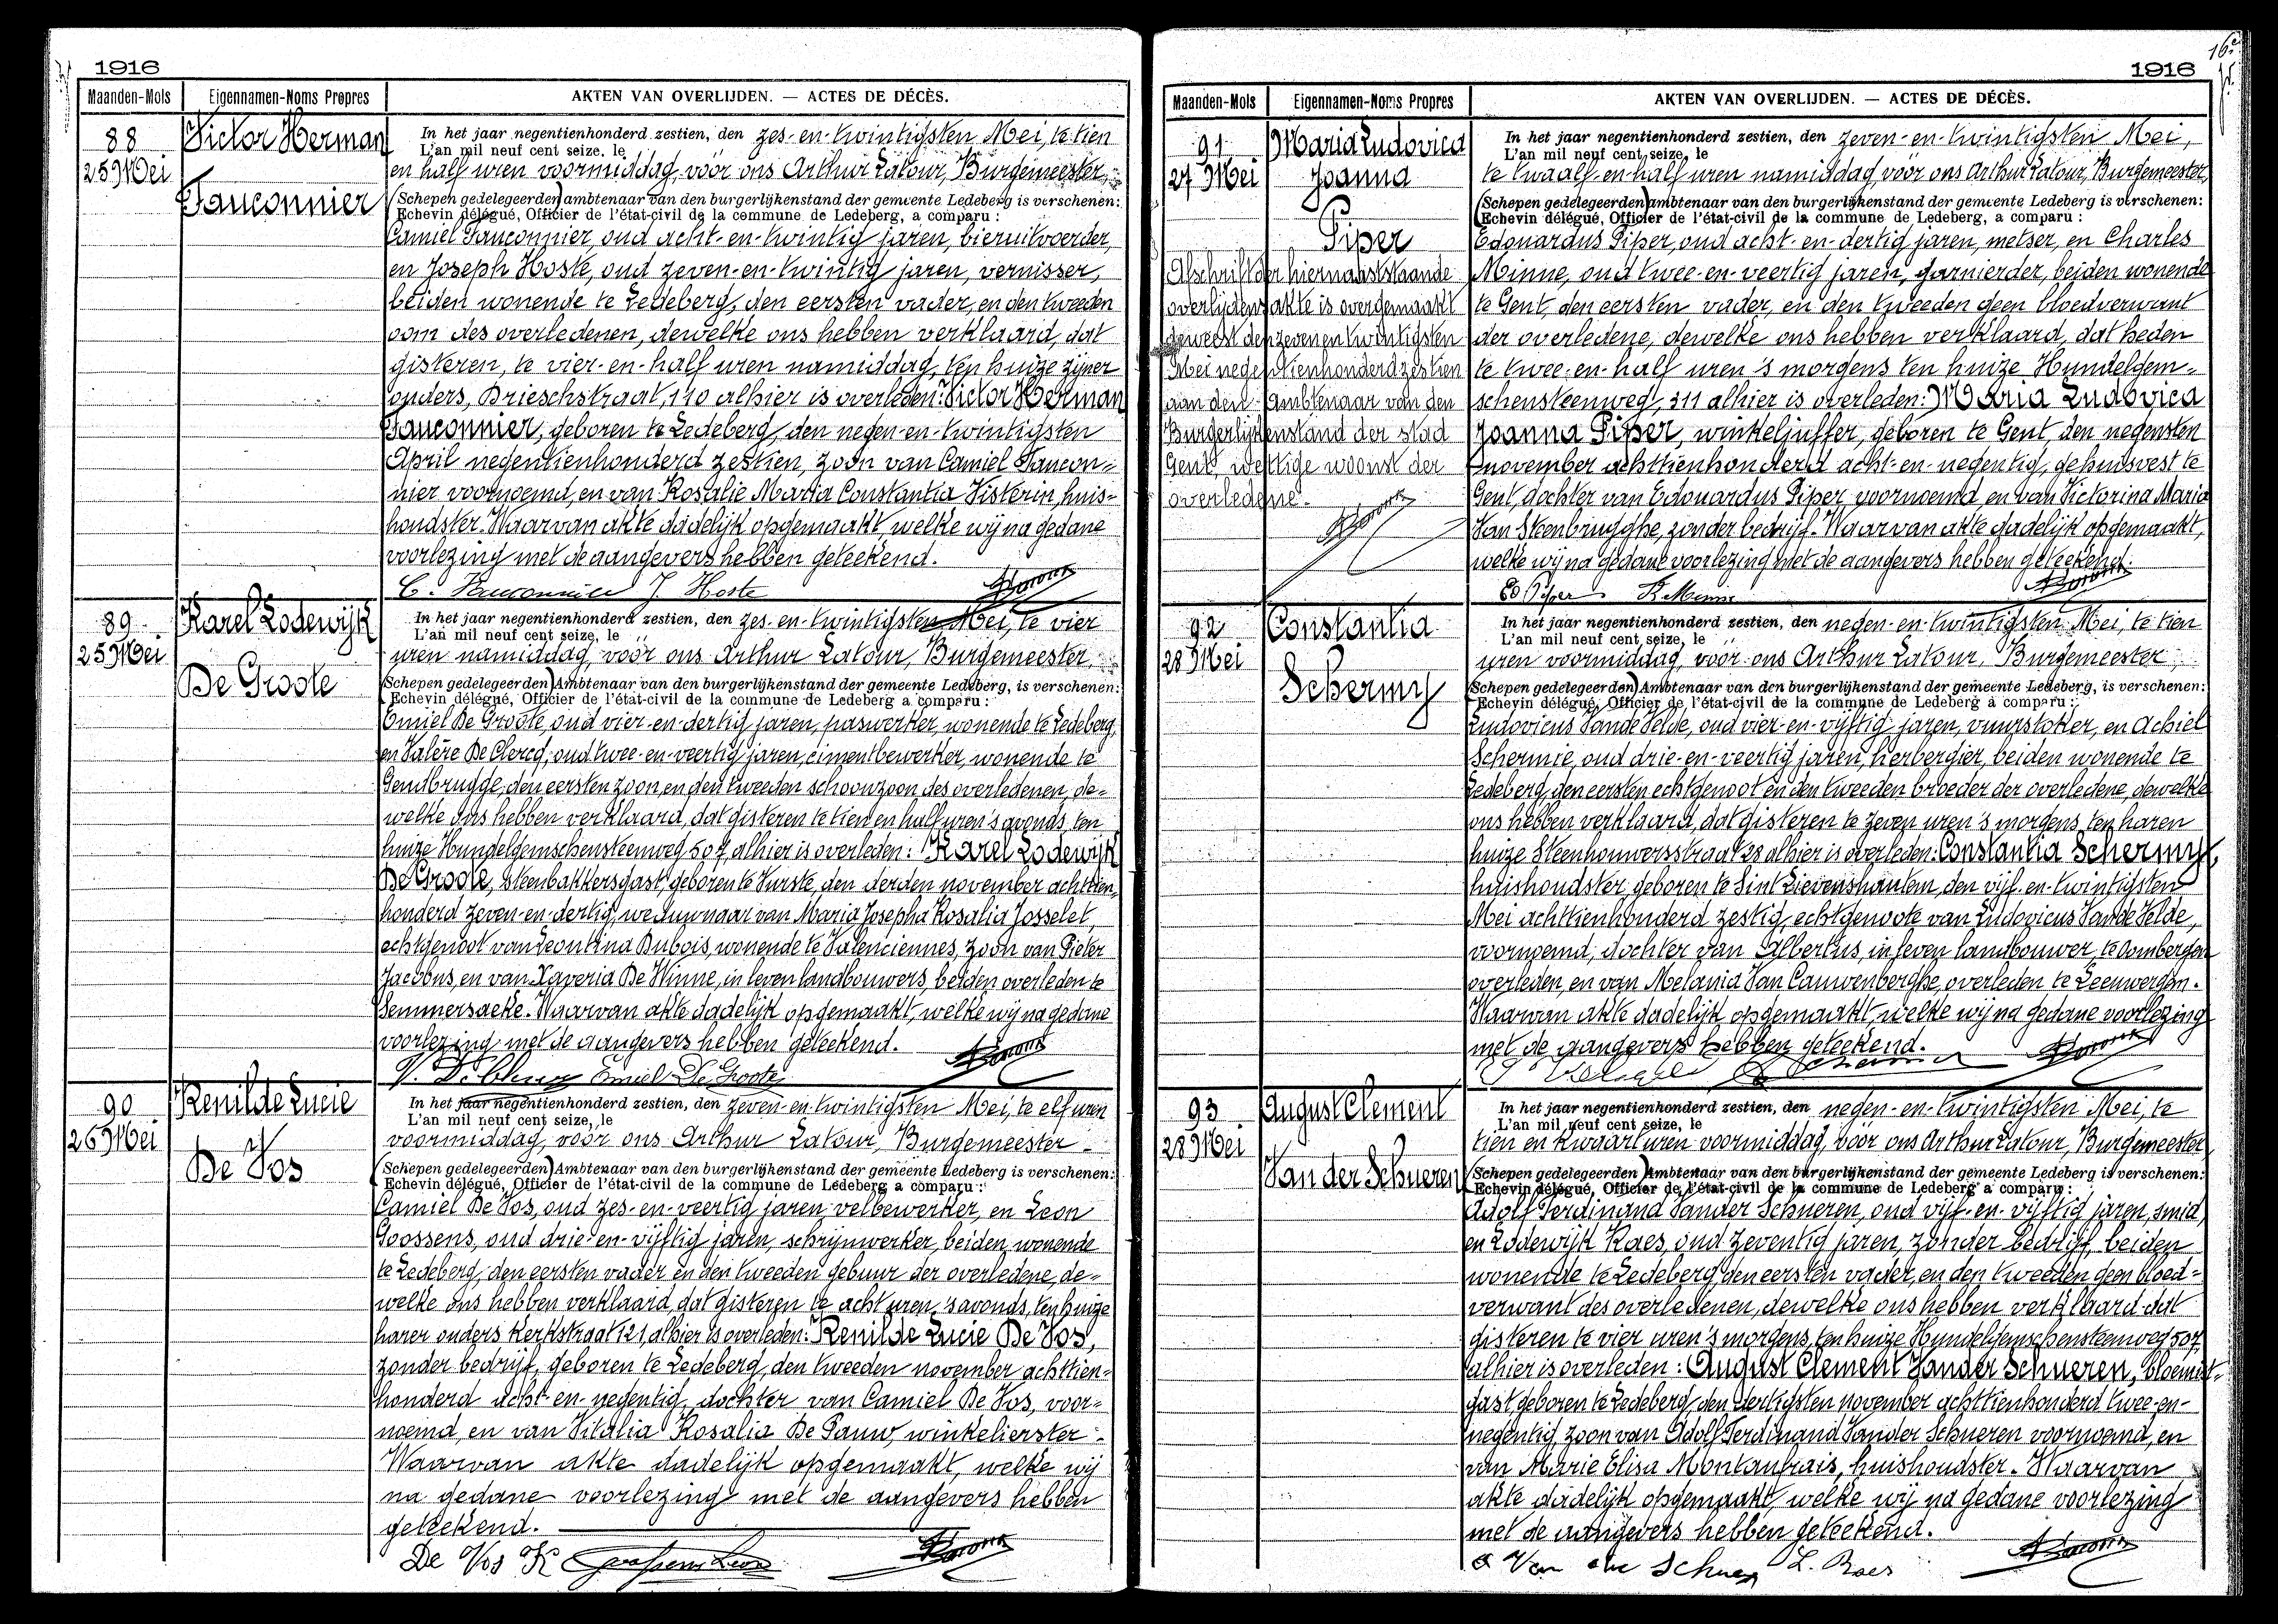 1916
Maanden-Mois Eigennamen-Noms Propres AKTEN VAN OVERLIJDEN. — ACTES DE DÉCÈS.
88
25 Mei
Victor Herman
Fauconnier
In het jaar negentienhonderd zestien, den zes-en-twintigsten Mei, te tien
L'an mil neuf cent seize, le
en half uren voormiddag, vóór ons Arthur Latour, Burgemeester,
Schepen gedelegeerden) ambtenaar van den burgerlijkenstand der gemeente Ledeberg is verschenen:
Echevin délégué, Officier de l'état-civil de la commune de Ledeberg, a comparu :
Camiel Fauconnier, oud acht-en-twintig jaren, bieruitvoerder,
en Joseph Hoste, oud zeven-en-twintig jaren, vernisser,
beiden wonende te Ledeberg, den eersten vader, en den tweeden
oom des overledenen, dewelke ons hebben verklaard, dat
gisteren, te vier-en-half uren namiddag, ten huize zijner
ouders, Brieschstraat, 110 alhier is overleden: Victor Herman
Fauconnier, geboren te Ledeberg, den negen-en-twintigsten
April negentienhonderd zestien, zoon van Camiel Faucon-
nier voornoemd, en van Rosalie Maria Constantia Visterin, huis-
houdster. Waarvan akte dadelijk opgemaakt, welke wij na gedane
voorlezing met de aangevers hebben geteekend.
C. Fauconnier J. Hoste
89
25 Mei
Karel Lodewijk
De Groote
In het jaar negentienhonderd zestien, den zes-en-twintigsten Mei, te vier
L'an mil neuf cent seize, le
uren namiddag, vóór ons Arthur Latour, Burgemeester,
Schepen gedelegeerden) Ambtenaar van den burgerlijkenstand der gemeente Ledeberg, is verschenen:
Echevin délégué, Officier de l'état-civil de la commune de Ledeberg a comparu :
Emiel De Groote, oud vier-en-dertig jaren, paswerker, wonende te Ledeberg,
en Valère De Clercq, oud twee-en-veertig jaren, cimentbewerker, wonende te
Gendbrugge, den eersten zoon, en den tweeden schoonzoon des overledenen, de-
welke ons hebben verklaard, dat gisteren te tien en half uren 's avonds, ten
huize Hundelgemschensteenweg, 507, alhier is overleden: Karel Lodewijk
De Groote, steenbakkersgast, geboren te Vurste, den derden november achttien-
honderd zeven-en-dertig, weduwnaar van Maria Josepha Rosalia Josselet,
echtgenoot van Leontina Dubois, wonende te Valenciennes, zoon van Pieter
Jacobus, en van Xaveria De Winne, in leven landbouwers, beiden overleden te
Semmersaeke. Waarvan akte dadelijk opgemaakt, welke wij na gedane
voorlezing met de aangevers hebben geteekend.
V. De Clercq Emiel De Groote
90
26 Mei
Renilde Lucie
De Vos
In het jaar negentienhonderd zestien, den zeven-en-twintigsten Mei, te elf uren
L'an mil neuf cent seize, le
voormiddag, vóór ons Arthur Latour, Burgemeester
Schepen gedelegeerden) Ambtenaar van den burgerlijkenstand der gemeente Ledeberg is verschenen:
Echevin délégué, Officier de l'état-civil de la commune de Ledeberg a comparu :
Camiel De Vos, oud zes-en-veertig jaren, velbewerker, en Leon
Goossens, oud drie-en-vijftig jaren, schrijnwerker, beiden wonende
te Ledeberg, den eersten vader en den tweeden gebuur der overledene, de-
welke ons hebben verklaard, dat gisteren te acht uren 's avonds, ten huize
harer ouders Kerkstraat 121, alhier is overleden: Renilde Lucie De Vos,
zonder bedrijf, geboren te Ledeberg, den tweeden november achttien-
honderd acht-en-negentig, dochter van Camiel De Vos, voor-
noemd, en van Vitalia Rosalia De Pauw, winkelierster.
Waarvan akte dadelijk opgemaakt, welke wij
na gedane voorlezing met de aangevers hebben
geteekend.
De Vos K Goossens Leon
1916
Maanden-Mois Eigennamen-Noms Propres AKTEN VAN OVERLIJDEN. — ACTES DE DÉCÈS.
91
27 Mei
Maria Ludovica
Joanna
Piper
Afschrift der hiernaaststaande
overlijdens akte is overgemaakt
geweest den zeven en twintigsten
Mei negentienhonderd zestien
aan den Ambtenaar van den
Burgerlijkenstand der stad
Gent, wettige woonst der
overledene.
In het jaar negentienhonderd zestien, den zeven-en-twintigsten Mei,
L'an mil neuf cent seize, le
te twaalf-en-half uren namiddag, vóór ons Arthur Latour, Burgemeester,
Schepen gedelegeerden) ambtenaar van den burgerlijkenstand der gemeente Ledeberg is verschenen:
Echevin délégué, Officier de l'état-civil de la commune de Ledeberg, a comparu :
Edouardus Piper, oud acht-en-dertig jaren, metser, en Charles
Minne, oud twee-en-veertig jaren, garnierder, beiden wonende
te Gent, den eersten vader, en den tweeden geen bloedverwant
der overledene, dewelke ons hebben verklaard, dat heden
te twee-en-half uren 's morgens ten huize Hundelgem-
schensteenweg, 311 alhier is overleden: Maria Ludovica
Joanna Piper, winkeljuffer, geboren te Gent, den negensten
november achttienhonderd acht-en-negentig, gehuisvest te
Gent, dochter van Edouardus Piper voornoemd en van Victorina Maria
Van Steenbrugghe, zonder bedrijf. Waarvan akte dadelijk opgemaakt,
welke wij na gedane voorlezing met de aangevers hebben geteekend.
Ed Piper Minne
92
28 Mei
Constantia
Schermy
In het jaar negentienhonderd zestien, den negen-en-twintigsten Mei, te tien
L'an mil neuf cent seize, le
uren voormiddag, vóór ons Arthur Latour, Burgemeester,
Schepen gedelegeerden) Ambtenaar van den burgerlijkenstand der gemeente Ledeberg, is verschenen:
Echevin délégué, Officier de l'état-civil de la commune de Ledeberg a comparu :
Ludovicus Van de Velde, oud vier-en-vijftig jaren, vuurstoker, en Achiel
Schermie, oud drie-en-veertig jaren, herbergier, beiden wonende te
Ledeberg, den eersten echtgenoot en den tweeden broeder der overledene, dewelke
ons hebben verklaard, dat gisteren te zeven uren 's morgens, ten haren
huize Steenhouwersstraat 28 alhier is overleden: Constantia Schermy,
huishoudster, geboren te Sint Lievenshautem, den vijf-en-twintigsten
Mei achttienhonderd zestig, echtgenoote van Ludovicus Van de Velde,
voornoemd, dochter van Albertus, in leven landbouwer, te Oombergen
overleden, en van Melania Van Cauwenberghe, overleden te Leeuwergem.
Waarvan akte dadelijk opgemaakt, welke wij na gedane voorlezing
met de aangevers hebben geteekend.
93
28 Mei
August Clement
Van der Schueren
In het jaar negentienhonderd zestien, den negen-en-twintigsten Mei, te
L'an mil neuf cent seize, le
tien en kwaart uren voormiddag, vóór ons Arthur Latour, Burgemeester
Schepen gedelegeerden) Ambtenaar van den burgerlijkenstand der gemeente Ledeberg is verschenen:
Echevin délégué, Officier de l'état-civil de la commune de Ledeberg a comparu :
Adolf Ferdinand Vander Schueren, oud vijf-en-vijftig jaren, smid,
en Lodewijk Raes, oud zeventig jaren, zonder bedrijf, beiden
wonende te Ledeberg, den eersten vader, en den tweeden geen bloed-
verwant des overledenen, dewelke ons hebben verklaard dat
gisteren te vier uren 's morgens, ten huize Hundelgemschensteenweg 507,
alhier is overleden: August Clement Vander Schueren, bloemist-
gast, geboren te Ledeberg, den dertigsten november achttienhonderd twee-en-
negentig, zoon van Adolf Ferdinand Vander Schueren voornoemd, en
van Marie Elisa Montaubais, huishoudster. Waarvan
akte dadelijk opgemaakt, welke wij na gedane voorlezing
met de aangevers hebben geteekend.
L. Raes